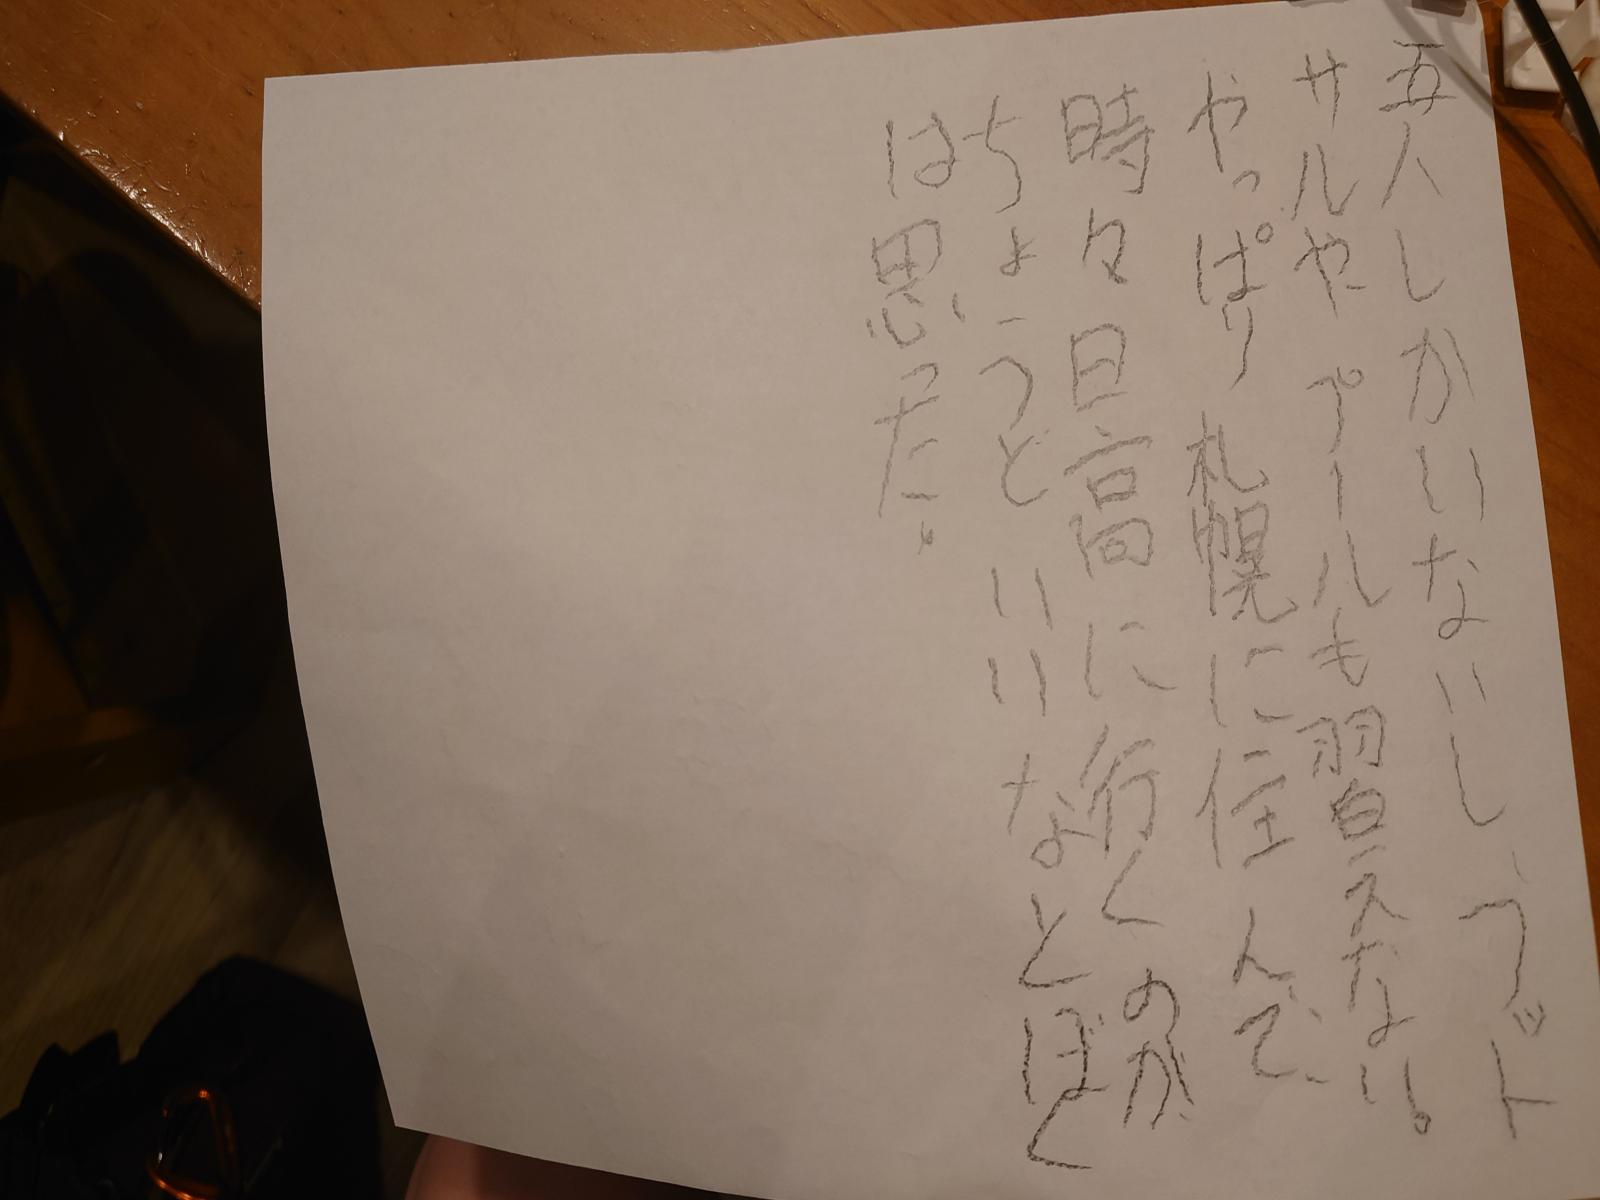 五人しかいないし、フット
サルやプールも習えない。
やっぱり札幌に住んで、
時々日高に行くのが
ちょうどいいなとぼく
は思った。